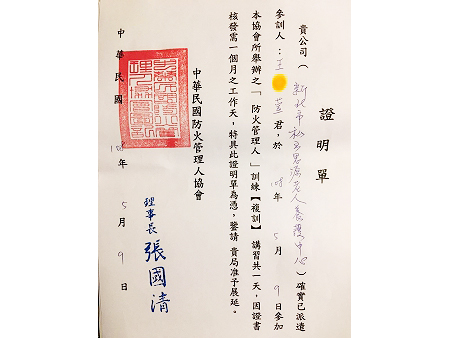 證明單
貴公司(新北市私立思源老人養護中心)確實已派遣
參訓人:王 萱君,於108年5月9日參加
本協會所舉辦之「防火管理人」訓練【複訓】講習共一天,因證書
核發需一個月之工作天,特具此證明單為憑,鑒請貴局准予展延。
中華民國防火管理人協會
理事長 張國清
中華民國108年5月9日